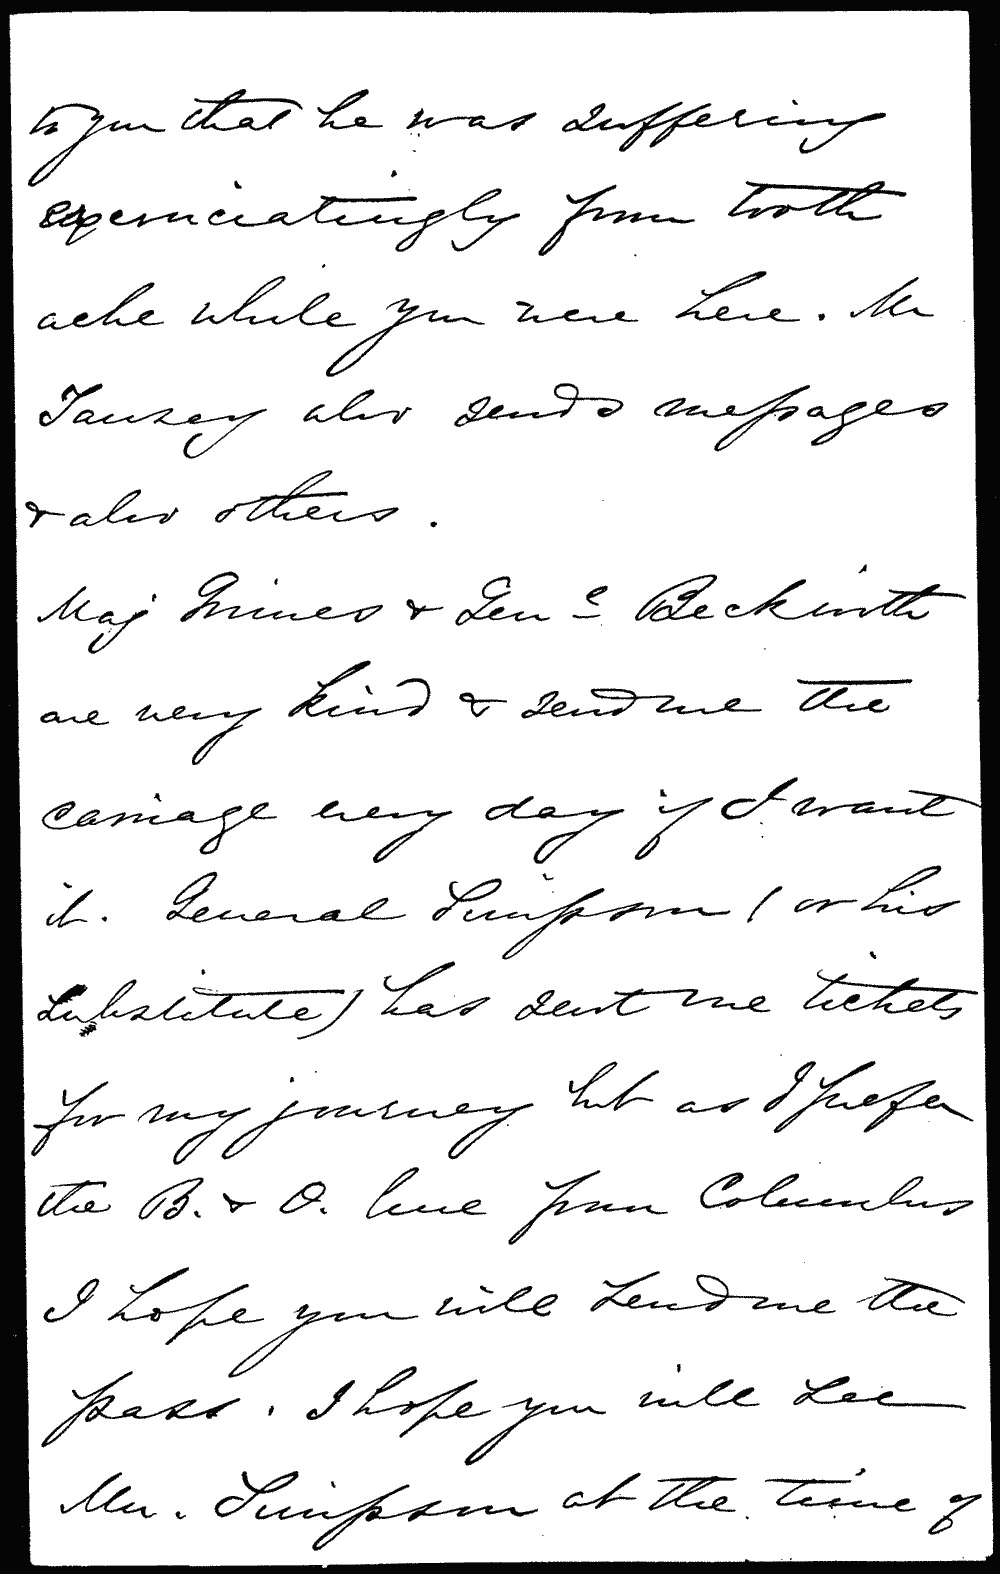 to you that he was suffering
excruciatingly from tooth
ache while you were here. Mr
Tansey also sends messages
& also others.
Maj Grimes & Genl Beckwith
are very kind & send me the
carriage every day if I want
it. General Simpson (or his
substitute) has sent me tickets
for my journey but as I prefer
the B. & O. line from Columbus
I hope you will send me the
pass. I hope you will see
Mrs. Simpson at the time of